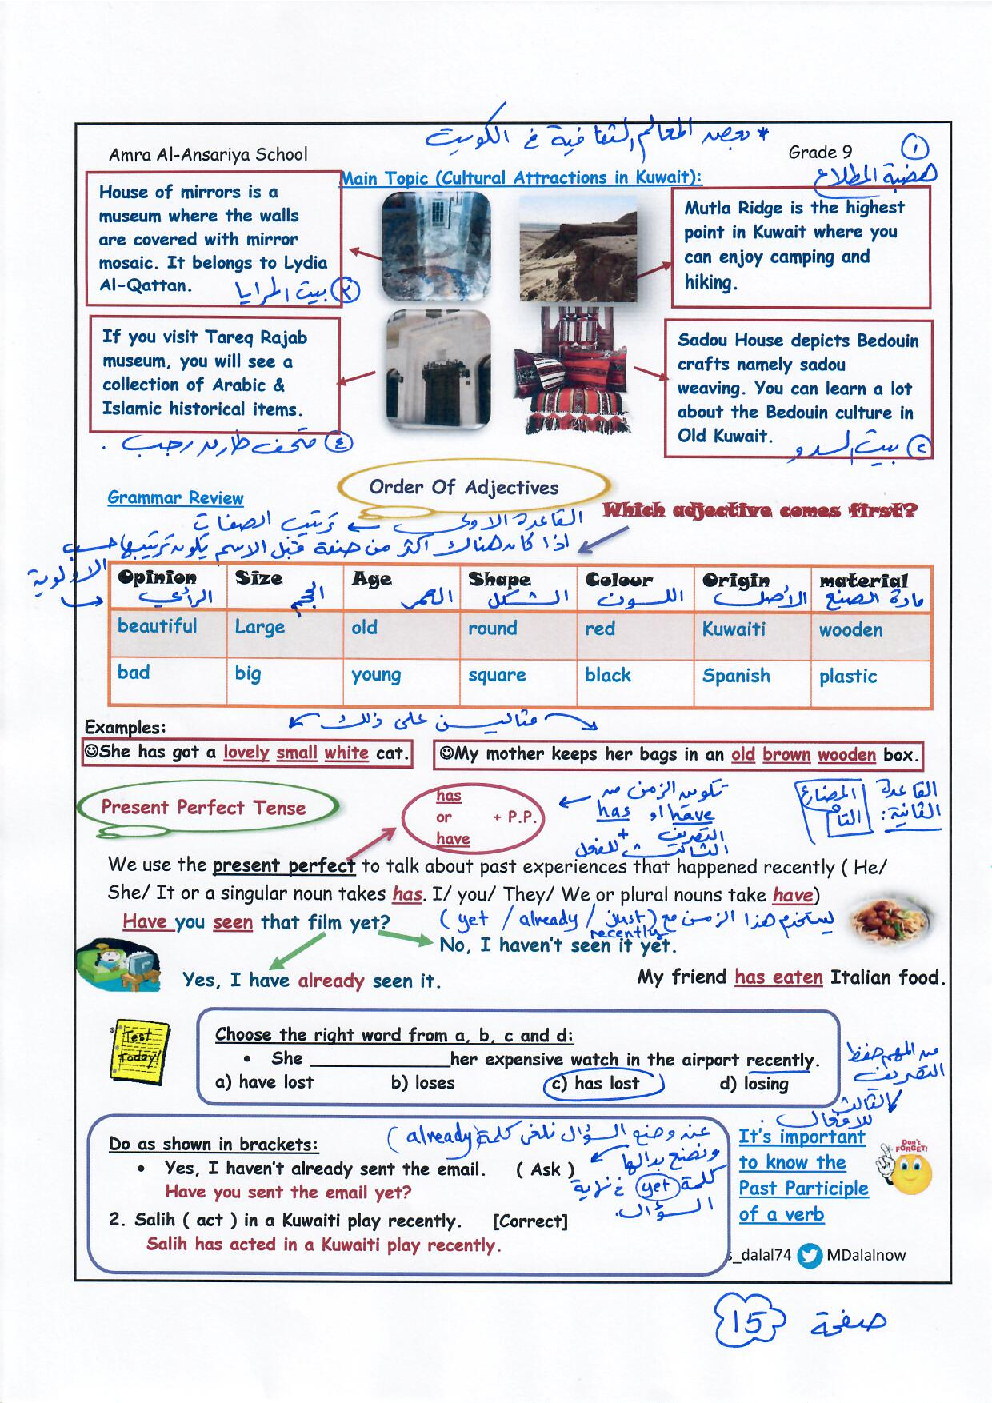 * بعض المعالم الثقافية في الكويت
Amra Al-Ansariya School
Grade 9
١
Main Topic (Cultural Attractions in Kuwait):
هضبة المطلاع
House of mirrors is a
museum where the walls
are covered with mirror
mosaic. It belongs to Lydia
Al-Qattan.
بيت المرايا
Mutla Ridge is the highest
point in Kuwait where you
can enjoy camping and
hiking.
If you visit Tareq Rajab
museum, you will see a
collection of Arabic &
Islamic historical items.
٤ متحف طارق رجب .
Sadou House depicts Bedouin
crafts namely sadou
weaving. You can learn a lot
about the Bedouin culture in
Old Kuwait.
بيت السدو
Order Of Adjectives
Grammar Review
Which adjective comes first?
القاعدة الاولى ← ترتيب الصفات
اذا كان هناك اكثر من صفة قبل الاسم يكون ترتيبها حسب
الاولوية
Opinion Size Age Shape Colour Origin material
الرأي الحجم العمر الشكل اللون الأصل مادة الصنع
beautiful Large old round red Kuwaiti wooden
bad big young square black Spanish plastic
مثالين على ذلك
Examples:
☺She has got a lovely small white cat.
☺My mother keeps her bags in an old brown wooden box.
Present Perfect Tense
has
or + P.P.
have
تكوين الزمن من
has او have
+
التصريف
الثالث للفعل
القاعدة
الثانية:
المضارع
التام
We use the present perfect to talk about past experiences that happened recently ( He/
She/ It or a singular noun takes has. I/ you/ They/ We or plural nouns take have)
Have you seen that film yet?
يستخدم هذا الزمن مع (yet / already / just /
recently
No, I haven't seen it yet.
Yes, I have already seen it.
My friend has eaten Italian food.
Test
Today!
Choose the right word from a, b, c and d:
• She ______________her expensive watch in the airport recently.
a) have lost b) loses c) has lost d) losing
من المهم حفظ
التصريف
الثالث
للافعال
Do as shown in brackets:
عند وضع السؤال نلغي كلمة (already)
ونضع بدالها
كلمة (yet) في نهاية
السؤال.
• Yes, I haven't already sent the email. ( Ask )
Have you sent the email yet?
2. Salih ( act ) in a Kuwaiti play recently. [Correct]
Salih has acted in a Kuwaiti play recently.
It's important
to know the
Past Participle
of a verb
DON'T
FORGET!
s_dalal74 MDalalnow
صفحة 15